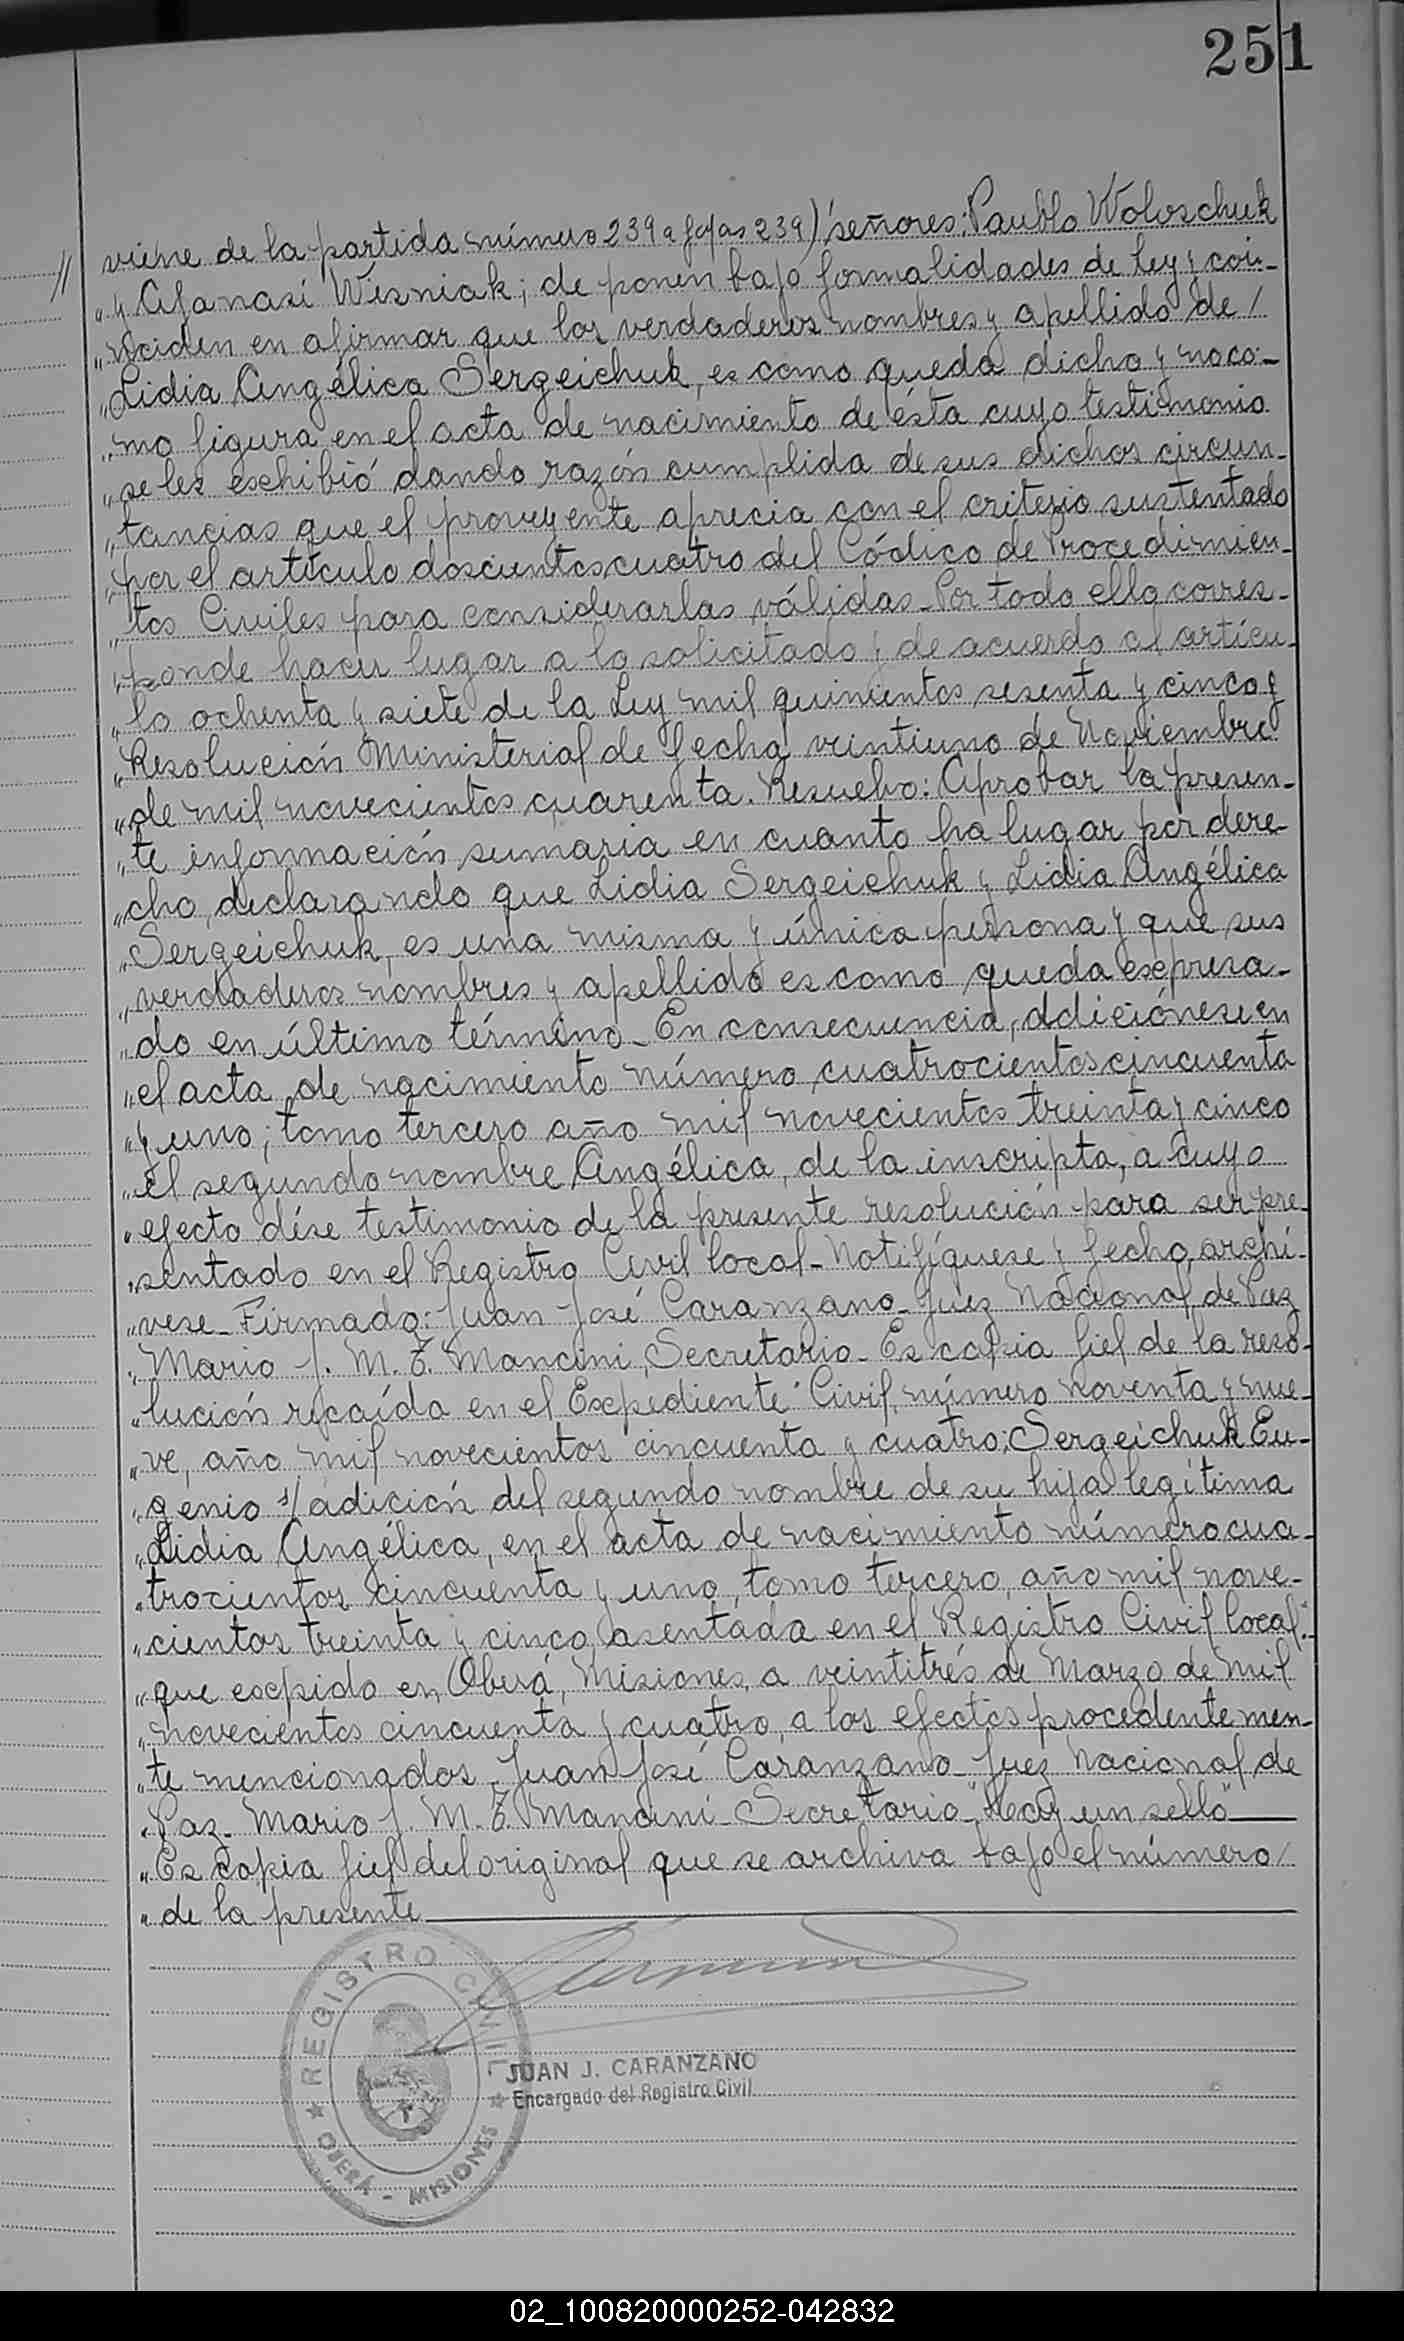 251
// viene de la partida número 239 a fojas 239) señores: Paublo Woloschuk
„ y Afanasi Wisniak; de ponen bajo formalidades de ley y coin-
„ ciden en afirmar que los verdaderos nombres y apellido de /
„ Lidia Angélica Sergeichuk, es como queda dicho y no co-
„ mo figura en el acta de nacimiento de ésta cuyo testimonio
„ se les exhibió dando razón cumplida de sus dichos circun-
„ tancias que el proveyente aprecia con el criterio sustentado
„ por el artículo doscientos cuatro del Códico de Procedimien-
„ tos Civiles para considerarlas válidas_ Por todo ello corres-
„ ponde hacer lugar a lo solicitado y de acuerdo al artícu-
„ lo ochenta y siete de la Ley mil quinientos sesenta y cinco y
„ Resolución Ministerial de fecha veintiuno de Noviembre
„ de mil novecientos cuarenta. Resuelvo: Aprobar la presen-
„ te información sumaria en cuanto ha lugar por dere-
„ cho, declarando que Lidia Sergeichuk y Lidia Angélica
„ Sergeichuk, es una misma y única persona y que sus
„ verdaderos nombres y apellido es como queda expresa-
„ do en último término_ En consecuencia, adiciónese en
„ el acta de nacimiento número cuatrocientos cincuenta
„ y uno; tomo tercero año mil novecientos treinta y cinco
„ el segundo nombre Angélica, de la inscripta, a cuyo
„ efecto dése testimonio de la presente resolución para ser pre-
„ sentado en el Registro Civil local_ Notifíquese y fecho archí-
„ vese_ Firmado: Juan José Caranzano_ Juez Nacional de Paz
„ Mario J. M. T. Mancini, Secretario_ Es copia fiel de la reso-
„ lución recaída en el Expediente Civil, número noventa y nue-
„ ve, año mil novecientos cincuenta y cuatro; Sergeichuk Eu-
„ genio s/ adición del segundo nombre de su hija legítima
„ Lidia Angélica, en el acta de nacimiento número cua-
„ trocientos cincuenta y uno, tomo tercero, año mil nove-
„ cientos treinta y cinco asentada en el Registro Civil local:-
„ que expido en Oberá, Misiones, a veintitrés de Marzo de mil
„ novecientos cincuenta y cuatro, a los efectos procedentemen-
„ te mencionados_ Juan José Caranzano_ Juez Nacional de
„ Paz_ Mario J. M. T. Mancini_ Secretario_ "Hay un sello"
„ Es copia fiel del original que se archiva bajo el número /
„ de la presente
REGISTRO CIVIL
OBERÁ - MISIONES
JUAN J. CARANZANO
Encargado del Registro Civil
02_100820000252-042832